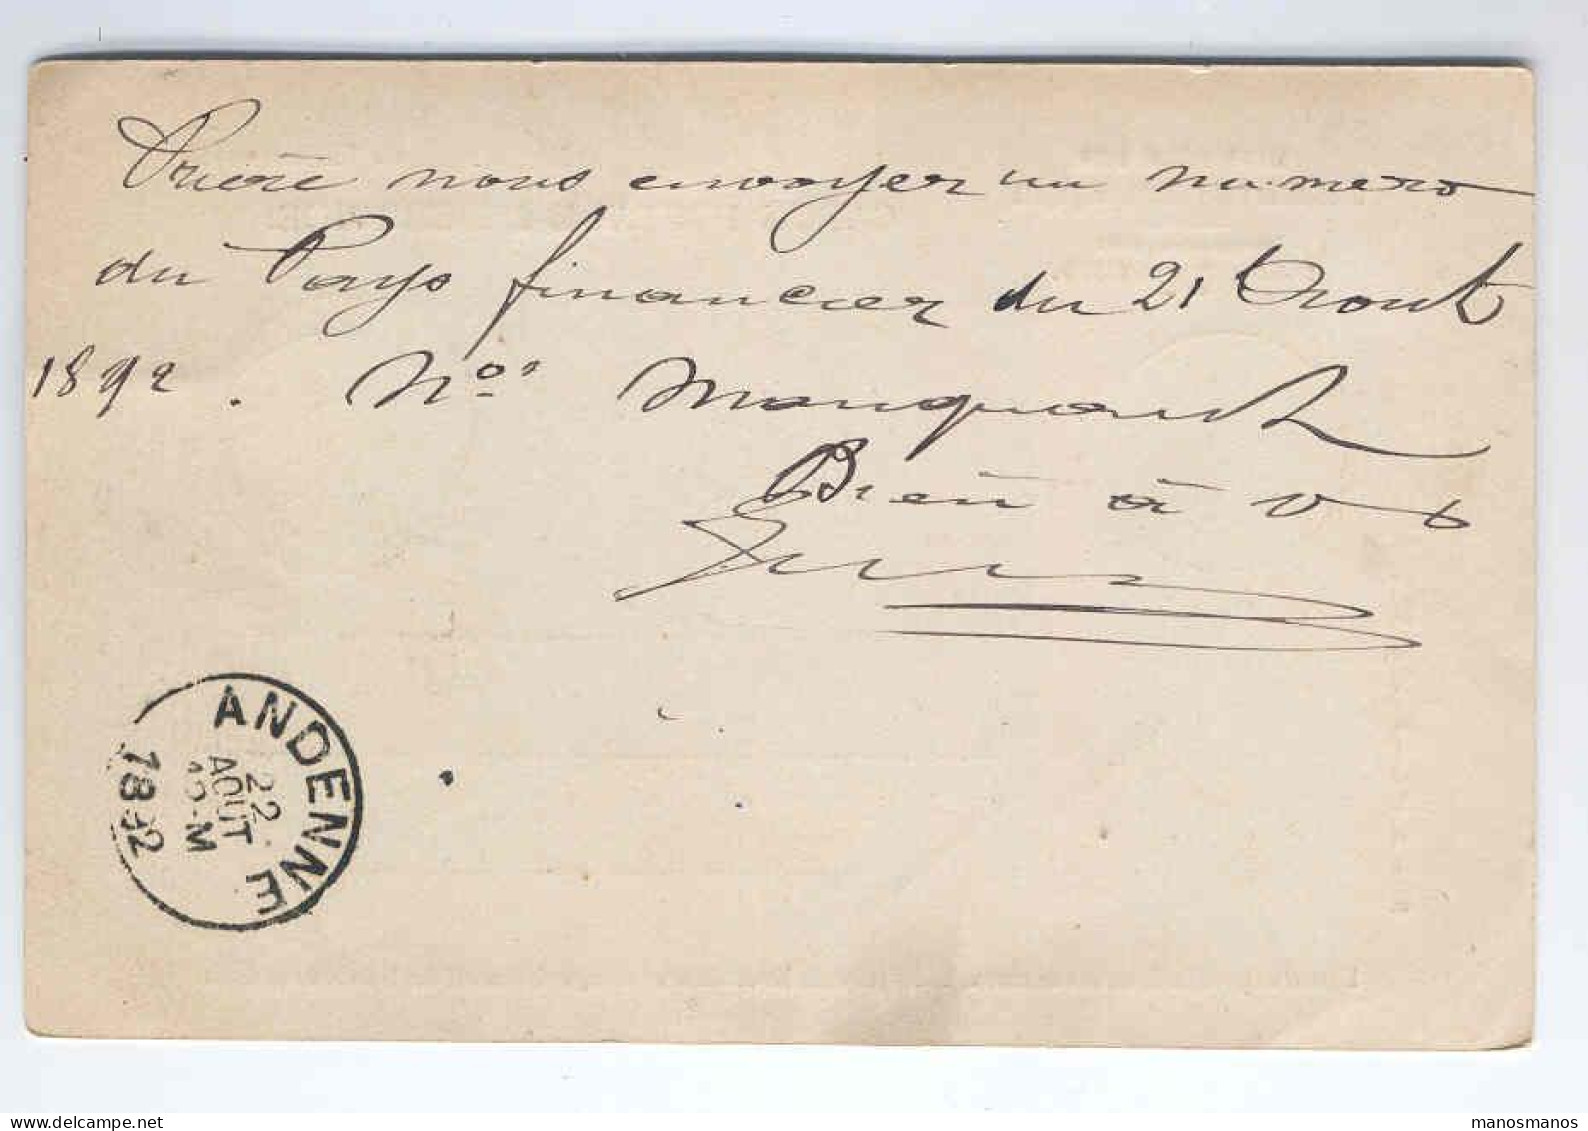 Prière nous envoyer un numero
du Pays financier du 21 Aout
1892. Nos manquant
Bien à vs
ANDENNE
22
AOUT
-M
1892
www.delcampe.net
manosmanos